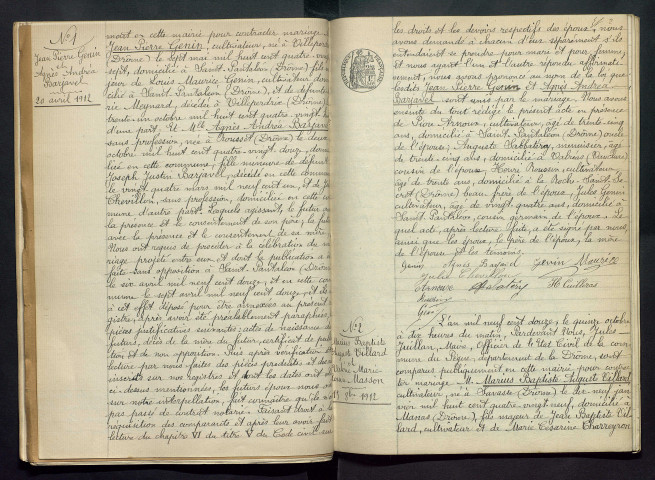 N° 1
Jean Pierre Genin
et
Agnès Andréa
Barjavel
20 avril 1912
en cette mairie pour contracter mariage
Jean Pierre Genin, cultivateur, né à Villeperdrix
(Drôme) le sept mai mil huit cent quatre-vingt-
sept, domicilié à Saint-Pantaléon (Drôme) fils
de Genin, cultivateur domi-
cilié à Saint-Pantaléon (Drôme), et de défunte
décédée à Villeperdrix (Drôme)
trente-un octobre mil huit cent quatre-vingt
d'une part. Et Mlle Agnès Andréa Barjavel
sans profession, née à Rousset (Drôme) le deux
octobre mil huit cent quatre-vingt-douze, domi-
liée en cette commune, fille mineure de défunt
Joseph Justin Barjavel, décédé en cette commune
le vingt quatre mars mil neuf cent un, et de
Chevillon, sans profession, domiciliée en cette com-
mune d'autre part. Lesquels agissant, le futur en
la présence et le consentement de son père, la future
avec la présence et le consentement de sa mère,
Nous ont requis de procéder à la célébration du ma-
riage projeté entre eux, et dont la publication a été
faite sans opposition à Saint-Pantaléon (Drôme)
le six avril mil neuf cent douze, et en cette com-
mune le sept avril mil neuf cent douze, et
à cet effet déposé pour être annexées au présent
registre, après avoir été préalablement paraphées,
pièces justificatives suivantes: actes de naissance des
futurs, décès de la mère du futur, certificat de publica-
tion et de non opposition. Puis après vérification et
lecture par nous faite des pièces produites et des
inscrits sur nos registres et dont les dates ont été
ci-dessus mentionnées, les futurs époux nous ont
sur notre interpellation, fait connaître qu'ils n'ont
pas passé de contrat notarié. Faisant droit à la
réquisition des comparants et après leur avoir fait
lecture du chapitre VI du titre V du Code civil sur
les droits et les devoirs respectifs des époux, nous
avons demandé à chacun d'eux séparément s'ils
entendaient se prendre pour mari et pour femme,
et nous ayant l'un et l'autre répondu affirmati-
vement, nous avons prononcé au nom de la loi que
Jean Pierre Genin Et Agnès Andréa
Barjavel sont unis par le mariage. Nous avons
ensuite du tout rédigé le présent acte en présence
de Arnoux, cultivateur, âgé de trente-cinq
ans, domicilié à Saint-Pantaléon (Drôme) oncle
de l'époux; Auguste menuisier, âgé
de trente-cinq ans, domicilié à Valréas (Vaucluse)
cousin de l'époux; Henri Roussin, cultivateur,
âgé de trente ans, domicilié à la Roche-Saint-Se-
cret (Drôme) beau-frère de l'épouse, Jules Genin
cultivateur, âgé de vingt-quatre ans, domicilié à
Saint-Pantaléon, cousin germain de l'époux. Le-
quel acte, après lecture faite, a été signé par nous
ainsi que les époux, le père de l'époux, la mère
de l'épouse et les témoins.
Genin Agnès Barjavel Genin
Arnoux
N° 2
Marius Baptiste
Auguste Vellard
et
Marie
Masson
15 8bre 1912
L'an mil neuf cent douze, le quinze octobre
à dix heures du matin, Pardevant Nous, Jules
Juillan, Maire, Officier de l'Etat Civil de la com-
mune du Pègue, département de la Drôme, sont
comparus publiquement en cette mairie pour contrac-
ter mariage M. Marius Baptiste Auguste Vellard
cultivateur, né à Savasse (Drôme) le dix-neuf jan-
vier mil huit cent quatre-vingt-neuf, domicilié à
(Drôme), fils majeur de Jean Baptiste Vel-
lard, cultivateur et de Marie Césarine Charreyron